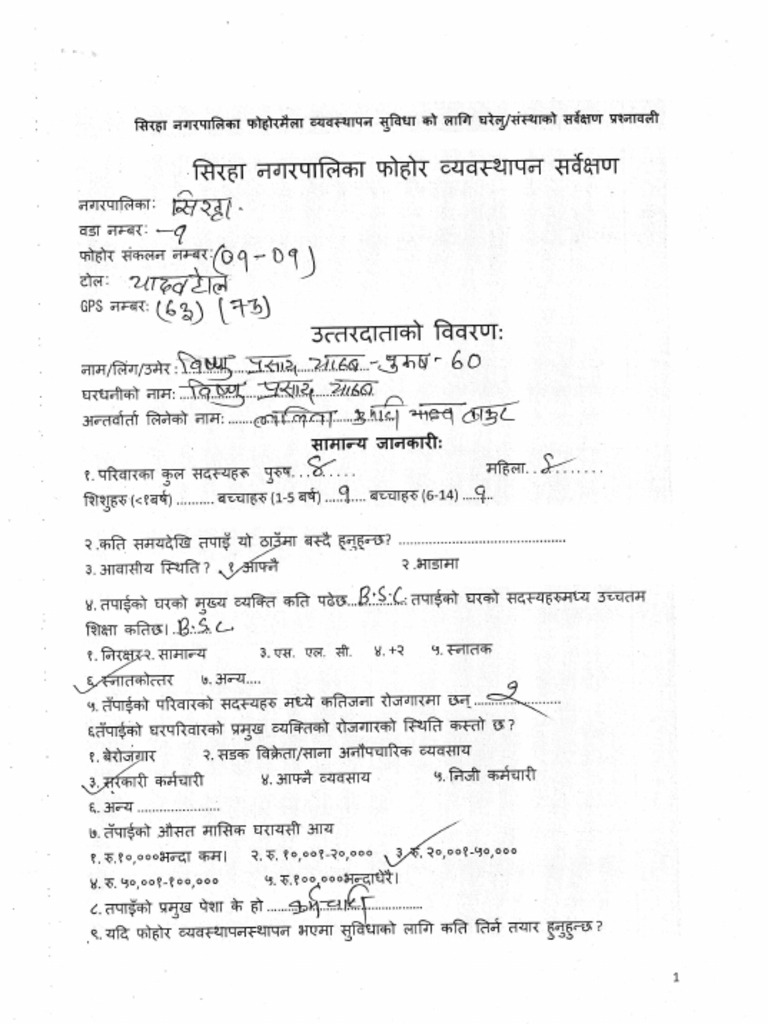 सिरहा नगरपालिका फोहोरमैला व्यवस्थापन सुविधा को लागि घरेलु/संस्थाको सर्वेक्षण प्रश्नावली
सिरहा नगरपालिका फोहोर व्यवस्थापन सर्वेक्षण
नगरपालिका: सिरहा
वडा नम्बर: -१
फोहोर संकलन नम्बर: (०१-०१)
टोल: यादव टोल
GPS नम्बर: (६३) (७३)
उत्तरदाताको विवरण:
नाम/लिंग/उमेर : विष्णु प्रसाद यादव - पुरुष - ६०
घरधनीको नाम: विष्णु प्रसाद यादव
अन्तर्वार्ता लिनेको नाम: ....... ललिता कुमारी ठाकुर
सामान्य जानकारी:
१. परिवारका कुल सदस्यहरू पुरुष...४..... महिला...२.......
शिशुहरु (<१बर्ष) .......... बच्चाहरु (1-5 बर्ष) ...१... बच्चाहरु (6-14) ...१...
२.कति समयदेखि तपाइँ यो ठाउँमा बस्दै हुनुहुन्छ? ..........................................
३. आवासीय स्थिति? १ आफ्नै २.भाडामा
४. तपाईको घरको मुख्य व्यक्ति कति पढेछ...B.S.C. तपाईको घरको सदस्यहरुमध्य उच्चतम
शिक्षा कतिछ। B.S.C.
१. निरक्षर २. सामान्य ३. एस. एल. सी. ४. +२ ५. स्नातक
६. स्नातकोत्तर ७. अन्य....
५. तँपाईको परिवारको सदस्यहरु मध्ये कतिजना रोजगारमा छन् ...२...
६तँपाईको घरपरिवारको प्रमुख व्यक्तिको रोजगारको स्थिति कस्तो छ?
१. बेरोजगार २. सडक विक्रेता/साना अनौपचारिक व्यवसाय
३. सरकारी कर्मचारी ४. आफ्नै व्यवसाय ५. निजी कर्मचारी
६. अन्य .....................
७. तँपाईको औसत मासिक घरायसी आय
१. रु.१०,०००भन्दा कम। २. रु. १०,००१-२०,००० ३. रु. २०,००१-५०,०००
४. रु. ५०,००१-१००,००० ५. रु.१००,०००भन्दाधेरै।
८. तपाइँको प्रमुख पेशा के हो ...कर्मचारी...
९. यदि फोहोर व्यवस्थापनस्थापन भएमा सुविधाको लागि कति तिर्न तयार हुनुहुन्छ?
1